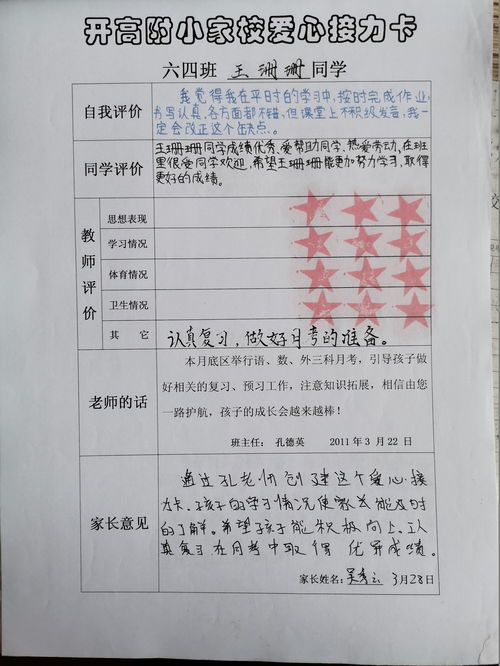 开高附小家校爱心接力卡
六四班 王珊珊同学
自我评价
我觉得我在平时的学习中,按时完成作业,
书写认真,各方面都不错,但课堂上不积极发言,我一
定会改正这个缺点。
同学评价
王珊珊同学成绩优秀,爱帮助同学,热爱劳动,在班
里很受同学欢迎,希望王珊珊能更加努力学习,取得
更好的成绩。
教师评价
思想表现
学习情况
体育情况
卫生情况
其 它
认真复习,做好月考的准备。
老师的话
本月底区举行语、数、外三科月考,引导孩子做
好相关的复习、预习工作,注意知识拓展,相信由您
一路护航,孩子的成长会越来越棒!
班主任: 孔德英 2011年 3 月 22 日
家长意见
通过孔老师创建这个爱心接
力卡,孩子的学习情况使家长能及时
的了解。希望孩子能积极向上,认
真复习在月考中取得 优异成绩。
家长姓名: 3月28日